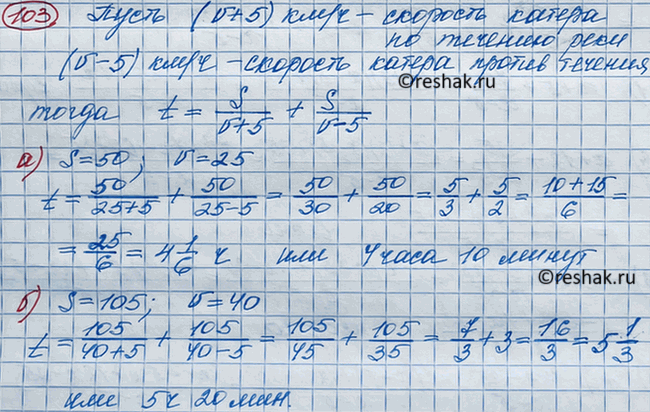 103 Пусть (v+5) км/ч – скорость катера
по течению реки
(v-5) км/ч – скорость катера против течения
©reshak.ru
тогда t = S/(v+5) + S/(v-5)
а) S=50; v=25
t = 50/(25+5) + 50/(25-5) = 50/30 + 50/20 = 5/3 + 5/2 = (10+15)/6 =
= 25/6 = 4 1/6 ч или 4 часа 10 минут
©reshak.ru
б) S=105; v=40
t = 105/(40+5) + 105/(40-5) = 105/45 + 105/35 = 7/3 + 3 = 16/3 = 5 1/3
или 5ч 20 мин.